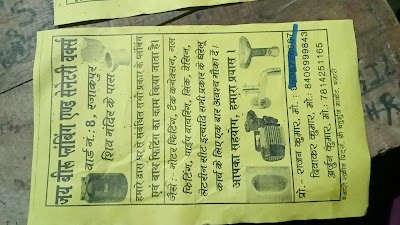 जय बीरू प्लंबिंग एण्ड सेनेटरी वर्क्स
वार्ड नं.: 8, इनाकपुर
शिव मंदिर के पास
हमारे द्वारा घर से संबंधित सभी प्रकार के प्लंबिंग
एवं बाथ फिटिंग का काम किया जाता है।
जैसे :- मोटर फिटिंग, टैंक कनेक्शन, नल
फिटिंग, पाईप वायरिंग, सिंक, बेसिन,
लेटरीन सीट इत्यादि सभी प्रकार के घरेलू
कार्य के लिए एक बार अवश्य मौका दें।
आपका सहयोग, हमारा प्रयास।
प्रो.- राजन कुमार, मो. :
दिवाकर कुमार, मो. 8406999843
अर्जुन कुमार, मो. 7814251165